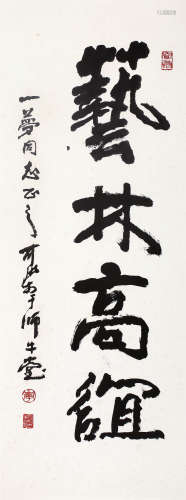 藝林高誼
一夢同志正之
可染于師牛堂